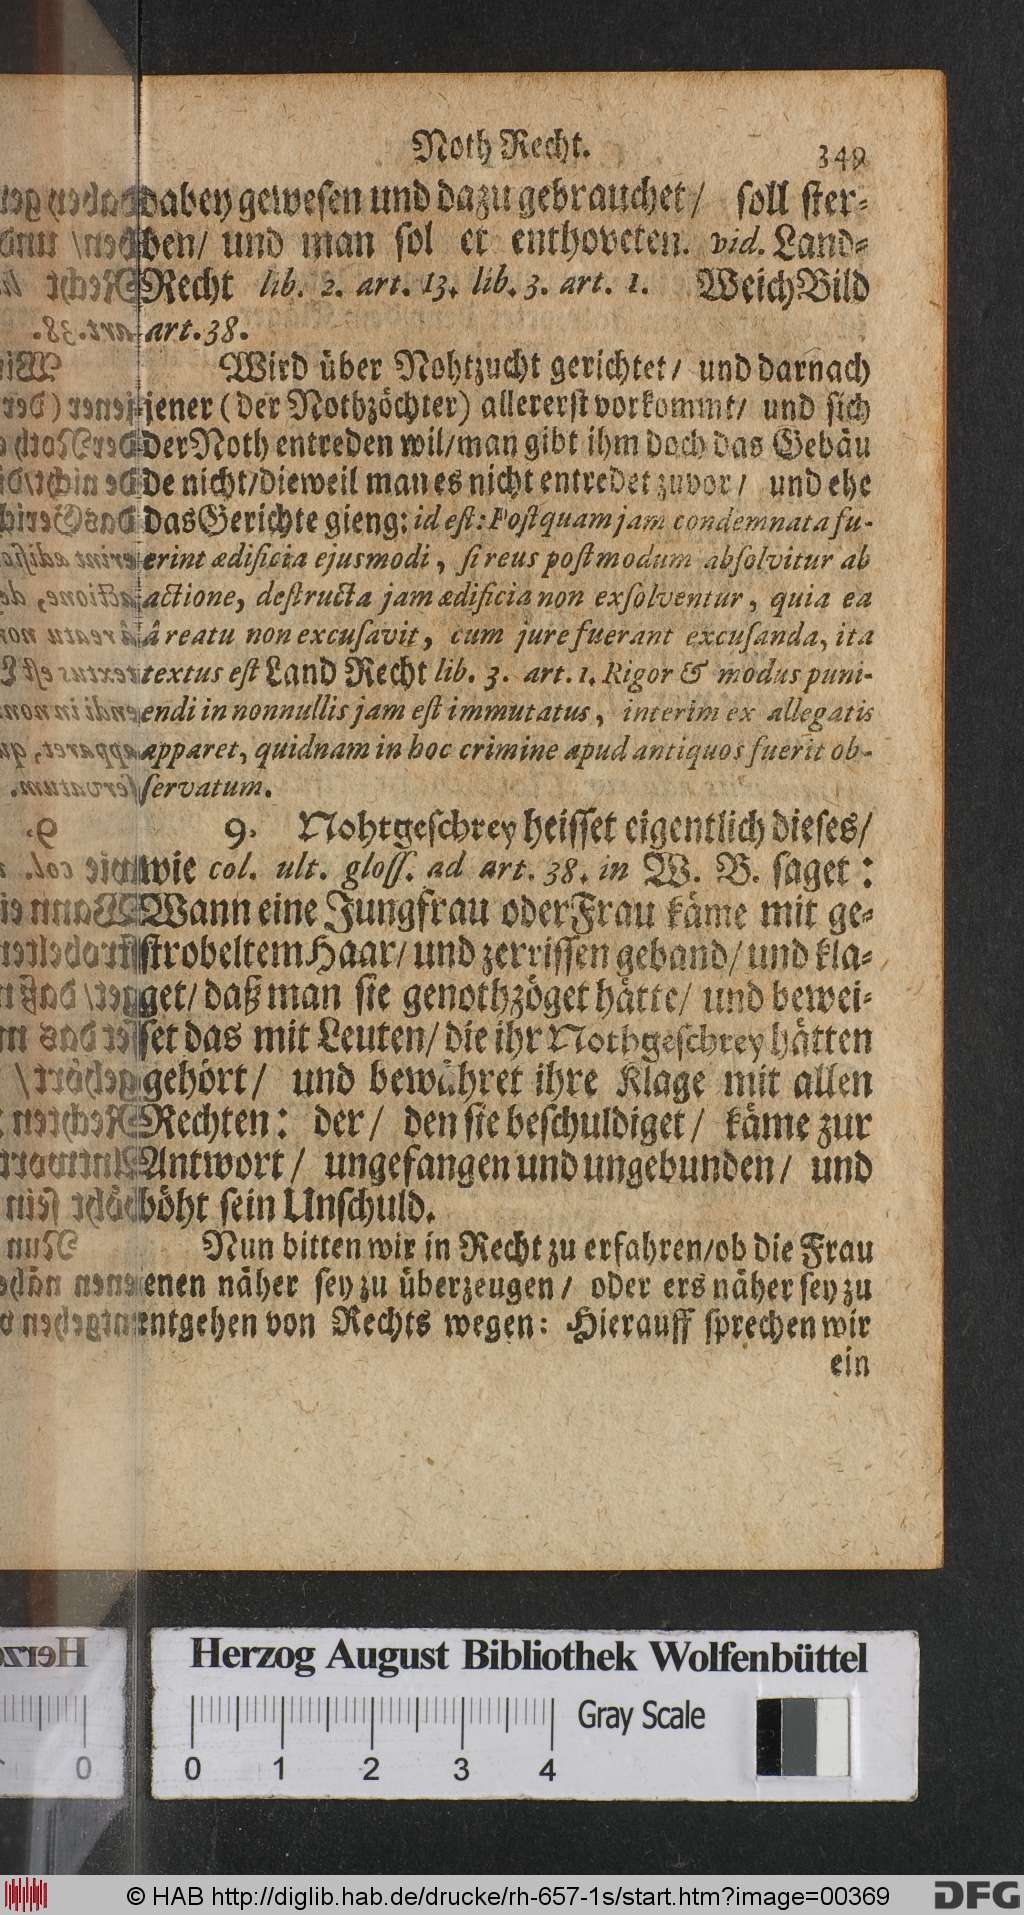 Noth Recht. 349
dabey gewesen und dazu gebrauchet/ soll ster-
ben/ und man sol er enthoveten. vid. Land-
Recht lib. 2. art. 13. lib. 3. art. 1. WeichBild
art. 38.
Wird über Nohtzucht gerichtet/ und darnach
jener (der Nothzöchter) allererst vorkommt/ und sich
der Noth entreden wil/ man gibt ihm doch das Gebäu
de nicht/ dieweil man es nicht entredet zuvor/ und ehe
das Gerichte gieng: id est: Postquam jam condemnata fu-
erint ædificia ejusmodi, si reus postmodum absolvitur ab
actione, destructa jam ædificia non exsolventur, quia ea
â reatu non excusavit, cum jure fuerant excusanda, ita
textus est Land Recht lib. 3. art. 1. Rigor & modus puni-
endi in nonnullis jam est immutatus, interim ex allegatis
apparet, quidnam in hoc crimine apud antiquos fuerit ob-
servatum.
9. Nohtgeschrey heisset eigentlich dieses/
wie col. ult. gloss. ad art. 38. in W. B. saget:
Wann eine Jungfrau oder Frau käme mit ge-
strobeltem Haar/ und zerrissen geband/ und kla-
get/ daß man sie genothzöget hätte/ und bewei-
set das mit Leuten/ die ihr Nothgeschrey hätten
gehört/ und bewähret ihre Klage mit allen
Rechten: der/ den sie beschuldiget/ käme zur
Antwort/ ungefangen und ungebunden/ und
böht sein Unschuld.
Nun bitten wir in Recht zu erfahren/ ob die Frau
enen näher sey zu überzeugen/ oder ers näher sey zu
entgehen von Rechts wegen: Hierauff sprechen wir
ein
Herzog August Bibliothek Wolfenbüttel
Gray Scale
0 1 2 3 4
© HAB http://diglib.hab.de/drucke/rh-657-1s/start.htm?image=00369
DFG